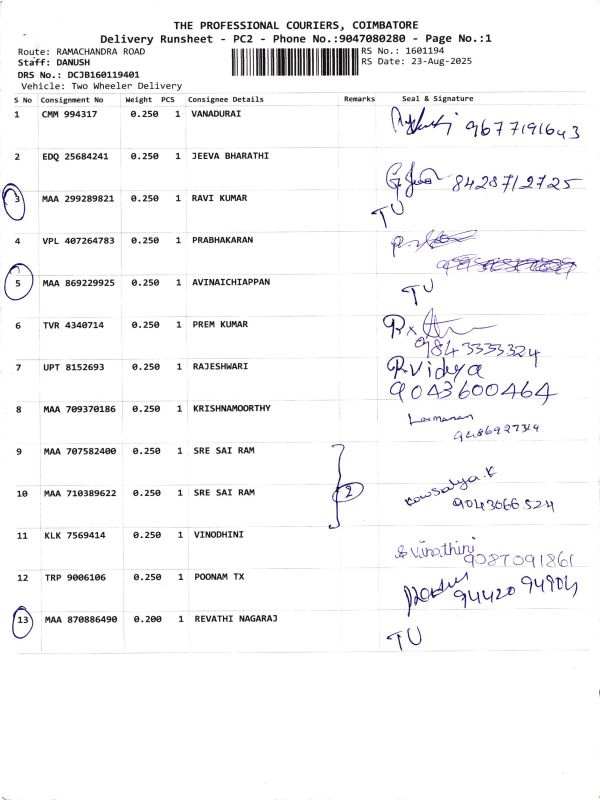 THE PROFESSIONAL COURIERS, COIMBATORE
Delivery Runsheet - PC2 - Phone No.:9047080280 - Page No.:1
Route: RAMACHANDRA ROAD RS No.: 1601194
Staff: DANUSH RS Date: 23-Aug-2025
DRS No.: DCJB160119401
Vehicle: Two Wheeler Delivery
S No Consignment No Weight PCS Consignee Details Remarks Seal & Signature
1 CMM 994317 0.250 1 VANADURAI
9677191643
2 EDQ 25684241 0.250 1 JEEVA BHARATHI
8428712725
3 MAA 299289821 0.250 1 RAVI KUMAR TU
4 VPL 407264783 0.250 1 PRABHAKARAN
5 MAA 869229925 0.250 1 AVINAICHIAPPAN TU
6 TVR 4340714 0.250 1 PREM KUMAR
9843333324
7 UPT 8152693 0.250 1 RAJESHWARI R.Vidya
9043600464
8 MAA 709370186 0.250 1 KRISHNAMOORTHY Laxmanan
9486927314
9 MAA 707582400 0.250 1 SRE SAI RAM
10 MAA 710389622 0.250 1 SRE SAI RAM 2 Kowsalya.K
9043066524
11 KLK 7569414 0.250 1 VINODHINI
S Vinothini
9087091861
12 TRP 9006106 0.250 1 POONAM TX
9442094904
13 MAA 870886490 0.200 1 REVATHI NAGARAJ TU